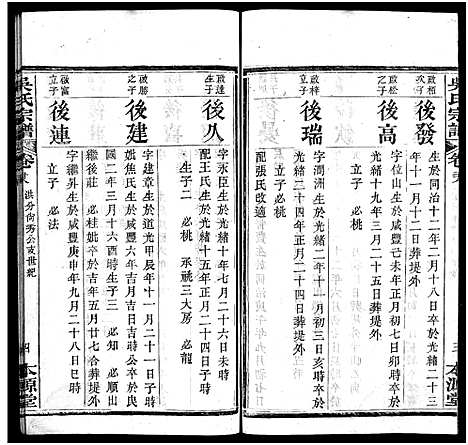 吳氏宗譜
卷
三
本源堂
政柏
之子
後發
生於同治十二年二月十八日卒於光緒二十三
年十一月十二日葬堤外
政松
之子
後高
字位山生於咸豐己未年十月初三日未時卒於
光緒十九年三月二十二日葬堤外
立子 必桃
政梓
立子
後瑞
字潤洲生於光緒十年十月初三日亥時卒於
光緒二十四年正月二十四日葬堤外
配張氏改適
立子 必桃
政達
生子
後八
字永臣生於光緒十年七月二十六日未時
配王氏生於光緒十五年正月二十八日
生子二 必桃 承祧三大房 必龍
政勝
之子
後建
字建章生於道光甲辰年十一月二十一日時
媲焦氏生於咸豐年月吉日吉時公卒於民
國二年三月十六酉時生子三 必知 必順出
繼後莊 必桂媲卒於吉年五月廿七合葬堤外
政富
立子
後連
字繼昇生於咸豐庚申年九月二十八日巳時
立子 必法
吳氏宗譜
卷
洪分向秀公支世紀
四
本源堂